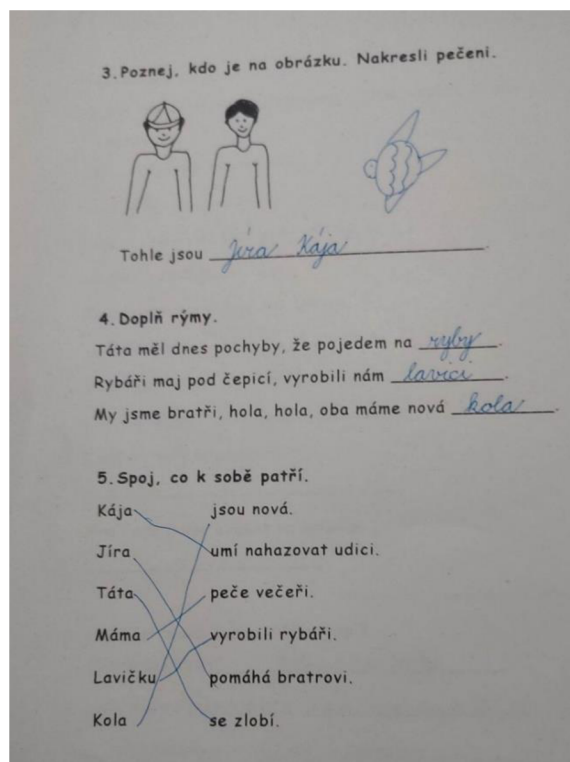 3. Poznej, kdo je na obrázku. Nakresli pečeni.
Tohle jsou Jíra Kája.
4. Doplň rýmy.
Táta měl dnes pochyby, že pojedem na ryby.
Rybáři maj pod čepicí, vyrobili nám lavici.
My jsme bratři, hola, hola, oba máme nová kola.
5. Spoj, co k sobě patří.
Kája jsou nová.
Jíra umí nahazovat udici.
Táta peče večeři.
Máma vyrobili rybáři.
Lavičku pomáhá bratrovi.
Kola se zlobí.